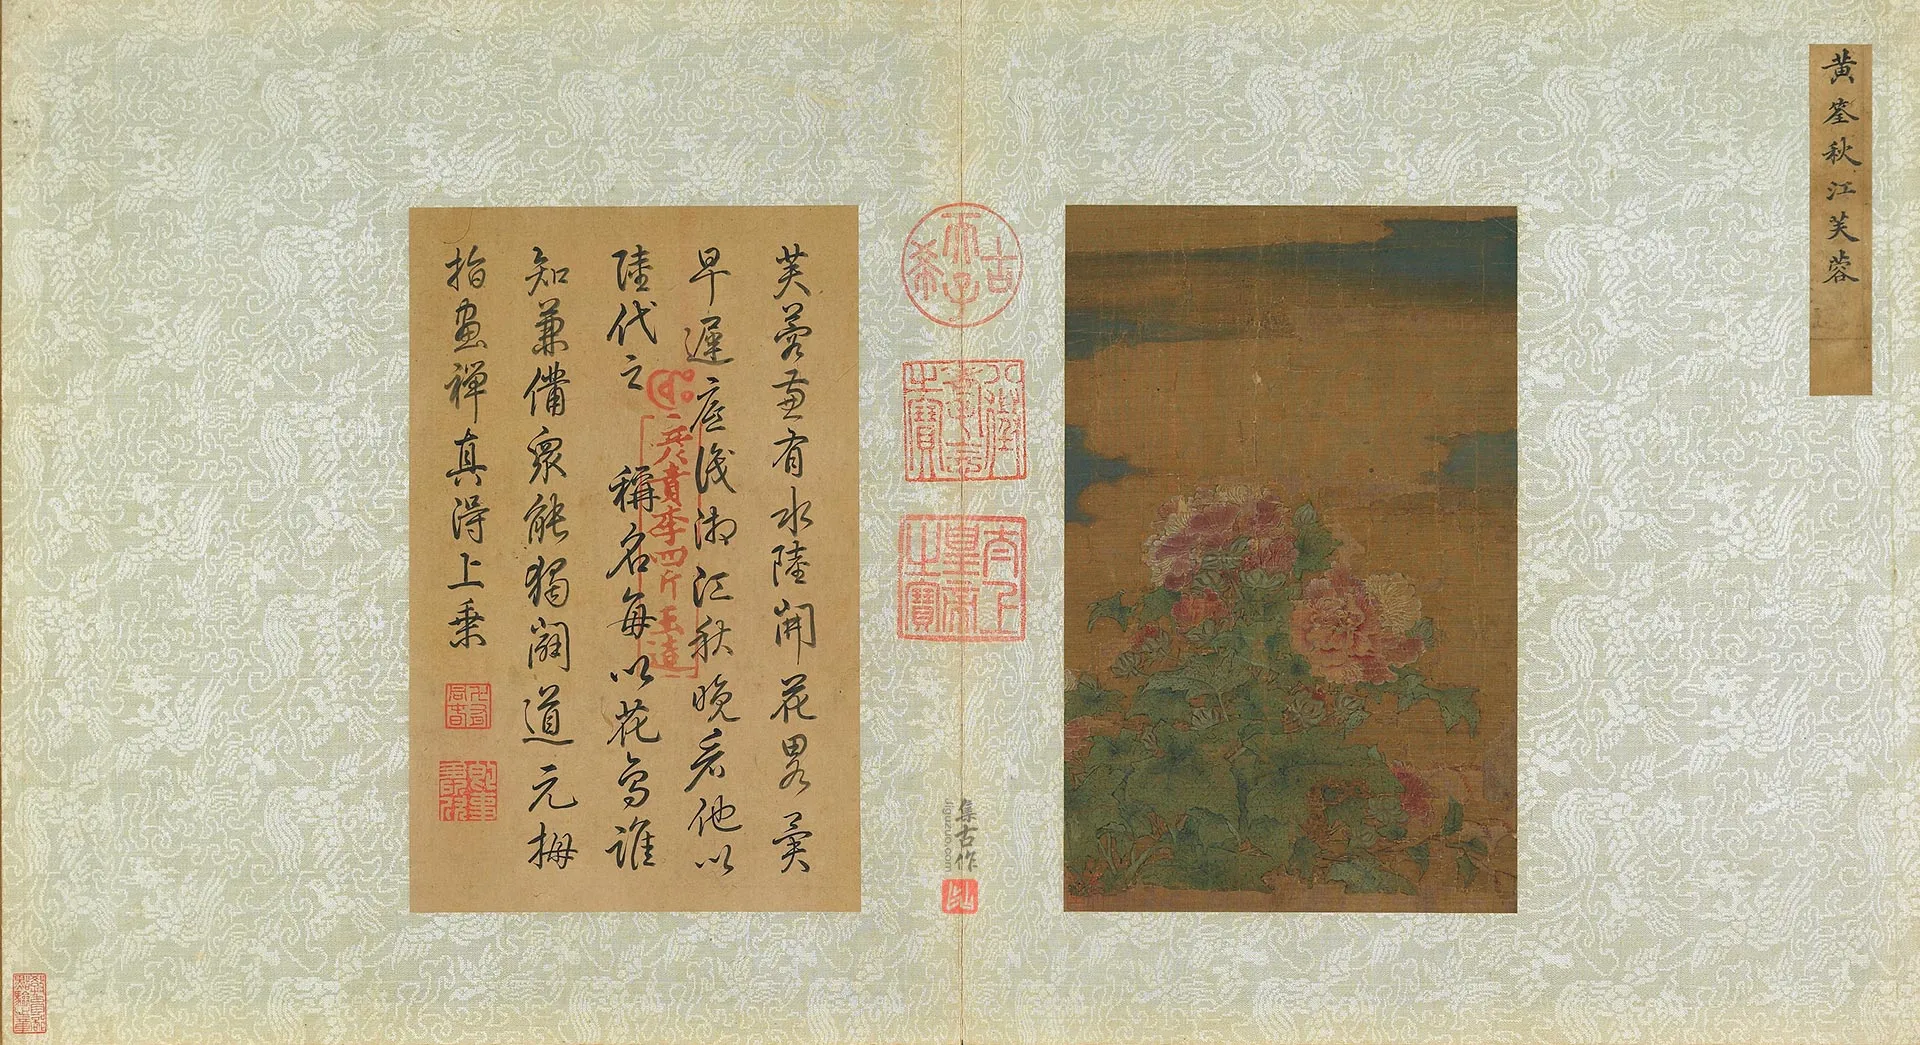 黃筌秋江芙蓉
芙蓉蓋有水陸開花畧異
早遲湘江秋晚看他以
陸代之
稱名每以花鳥誰
知兼備眾能獨闢道元拇
指畫禪真得上乘
古稀天子
八徵耄念之寶
太上皇帝之寶
集古作
jiguzuo.com